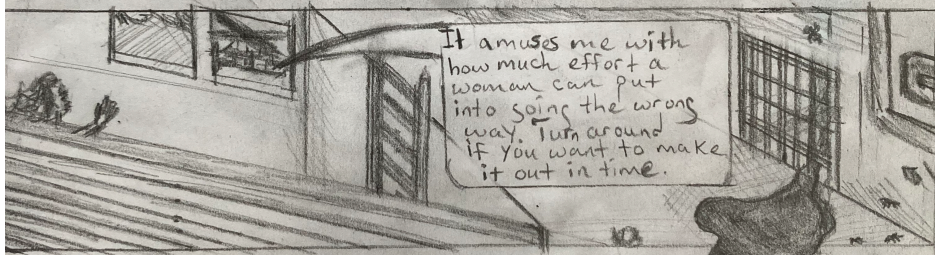 It amuses me with
how much effort a
woman can put
into going the wrong
way. Turn around
if you want to make
it out in time.